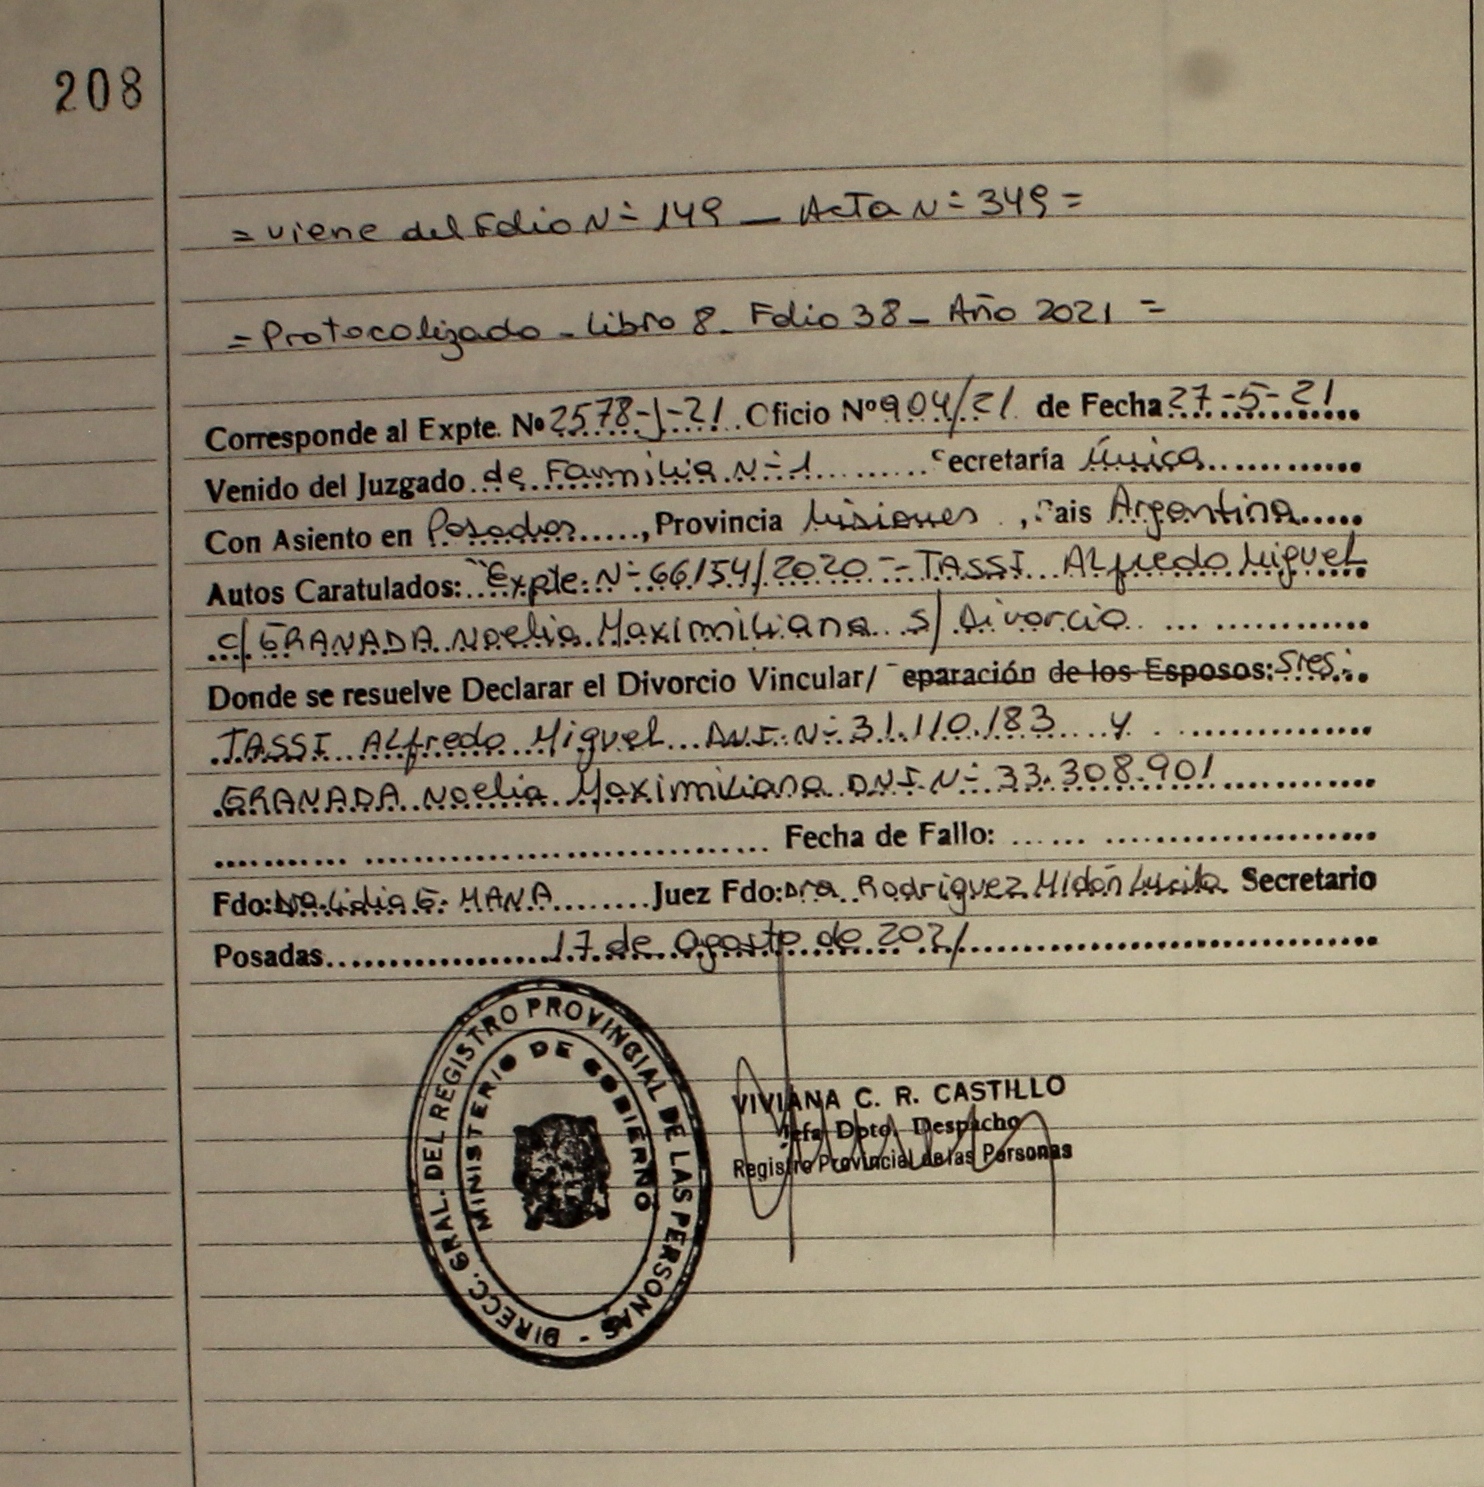 208
= viene del Folio Nº 149 _ Acta Nº 349 =
= Protocolizado - Libro 8 - Folio 38 - Año 2021 =
Corresponde al Expte. Nº 2578-J-21. Oficio Nº 904/21 de Fecha 27-5-21
Venido del Juzgado de Familia Nº 1 Secretaría Única
Con Asiento en Posadas, Provincia Misiones, Pais Argentina
Autos Caratulados: "Expte. Nº 66154/2020 - TASSI Alfredo Miguel
c/ GRANADA Noelia Maximiliana s/ Divorcio
Donde se resuelve Declarar el Divorcio Vincular/ eparación de los Esposos: Sres.
TASSI Alfredo Miguel D.N.I. Nº 31.110.183 y
GRANADA Noelia Maximiliana D.N.I. Nº 33.308.901
Fecha de Fallo:
Fdo: Dra. Lidia G. MANA Juez Fdo: Dra. Rodriguez Midón Lucila Secretario
Posadas 17 de agosto de 2021
DIRECC. GRAL. DEL REGISTRO PROVINCIAL DE LAS PERSONAS -
MINISTERIO DE GOBIERNO
VIVIANA C. R. CASTILLO
Jefa Dpto. Despacho
Registro Provincial de las Personas